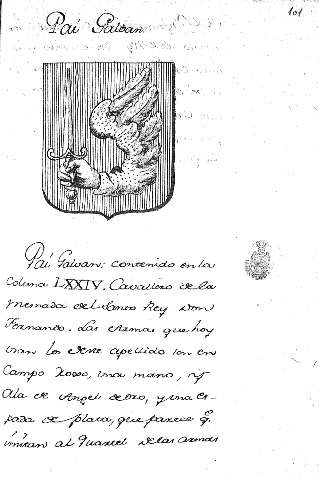 101
Paí Galvan
Paí Galvan; contenido en la
Coluna LXXIV. Cavallero de la
Mesnada del Santo Rey Don
Fernando. Las Armas que hoy
usan los deste apellido son en
Campo Roxo, una mano, y
Ala de Angel de oro, y una es-
pada de plata, que parece q.
imitan al Quartel de las Armas